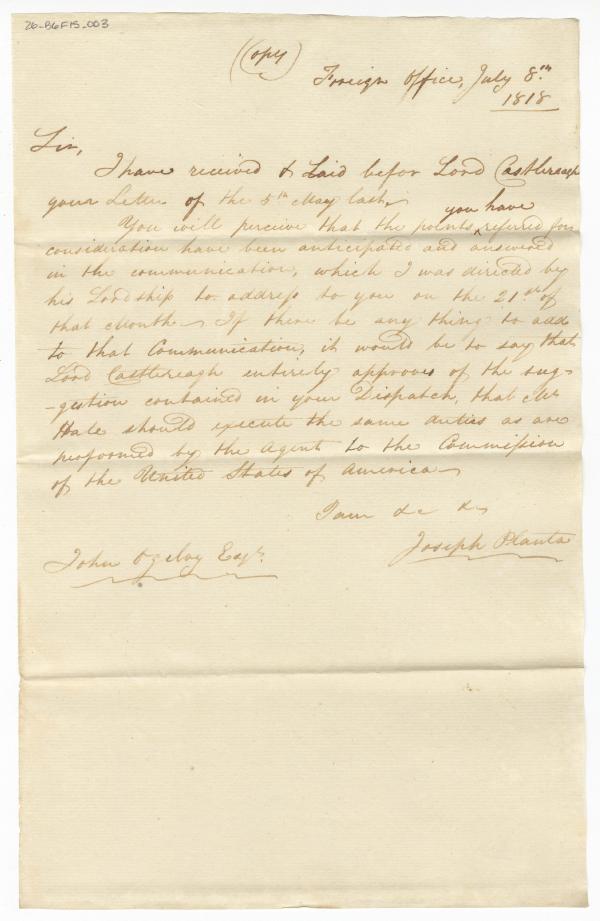 26-B6F15_003
(Copy)
Foreign Office, July 8.th
1818
Sir,
I have received & Laid befor Lord Castlereagh
your Letter of the 5th May last,
You will perceive that the points you have referred for
consideration have been anticipated and answered
in the communication, which I was directed by
his Lordship to address to you on the 21.st of
that Month If there be any thing to add
to that Communication, it would be to say that
Lord Castlereagh entirely approves of the sug-
-gestion contained in your Dispatch, that Mr
Hale should execute the same duties as are
preformed by the Agent to the Commission
of the United States of America
I am &c &c
Joseph Planta
John Ogelvy Esqr.